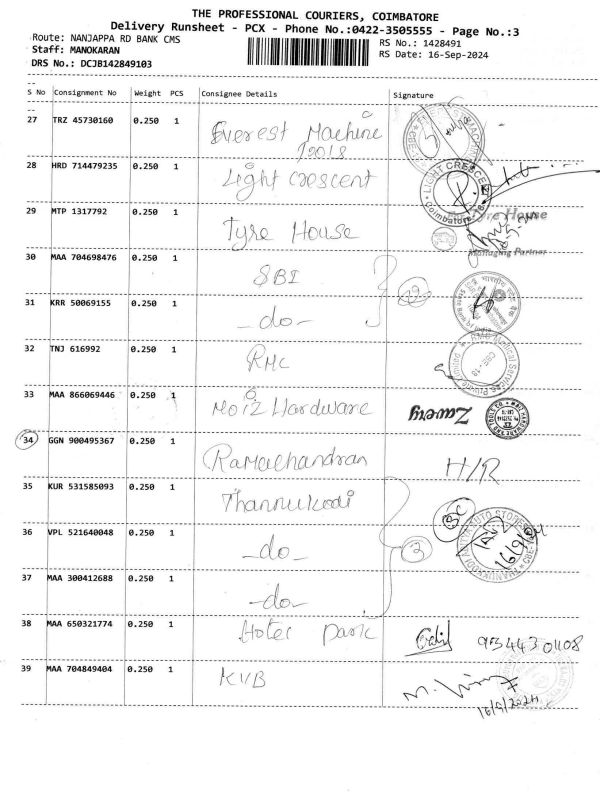 THE PROFESSIONAL COURIERS, COIMBATORE
Delivery Runsheet - PCX - Phone No.:0422-3505555 - Page No.:3
Route: NANJAPPA RD BANK CMS
RS No.: 1428491
Staff: MANOKARAN
RS Date: 16-Sep-2024
DRS No.: DCJB142849103
S No Consignment No Weight PCS Consignee Details Signature
27 TRZ 45730160 0.250 1 Everest Machine
28 HRD 714479235 0.250 1 Light crescent
LIGHT CRESCENT
Coimbatore-18
29 MTP 1317792 0.250 1 Tyre House
Tyre House
Managing Partner
30 MAA 704698476 0.250 1 SBI
31 KRR 50069155 0.250 1 -do-
32 TNJ 616992 0.250 1 RMC
33 MAA 866069446 0.250 1 Moiz Hardware
Zavery
34 GGN 900495367 0.250 1 Ramachandran H/R
35 KUR 531585093 0.250 1 Thannukodi
36 VPL 521640048 0.250 1 -do- 3
37 MAA 300412688 0.250 1 -do-
38 MAA 650321774 0.250 1 Hotel park
39 MAA 704849404 0.250 1 KVB
16/9/2024